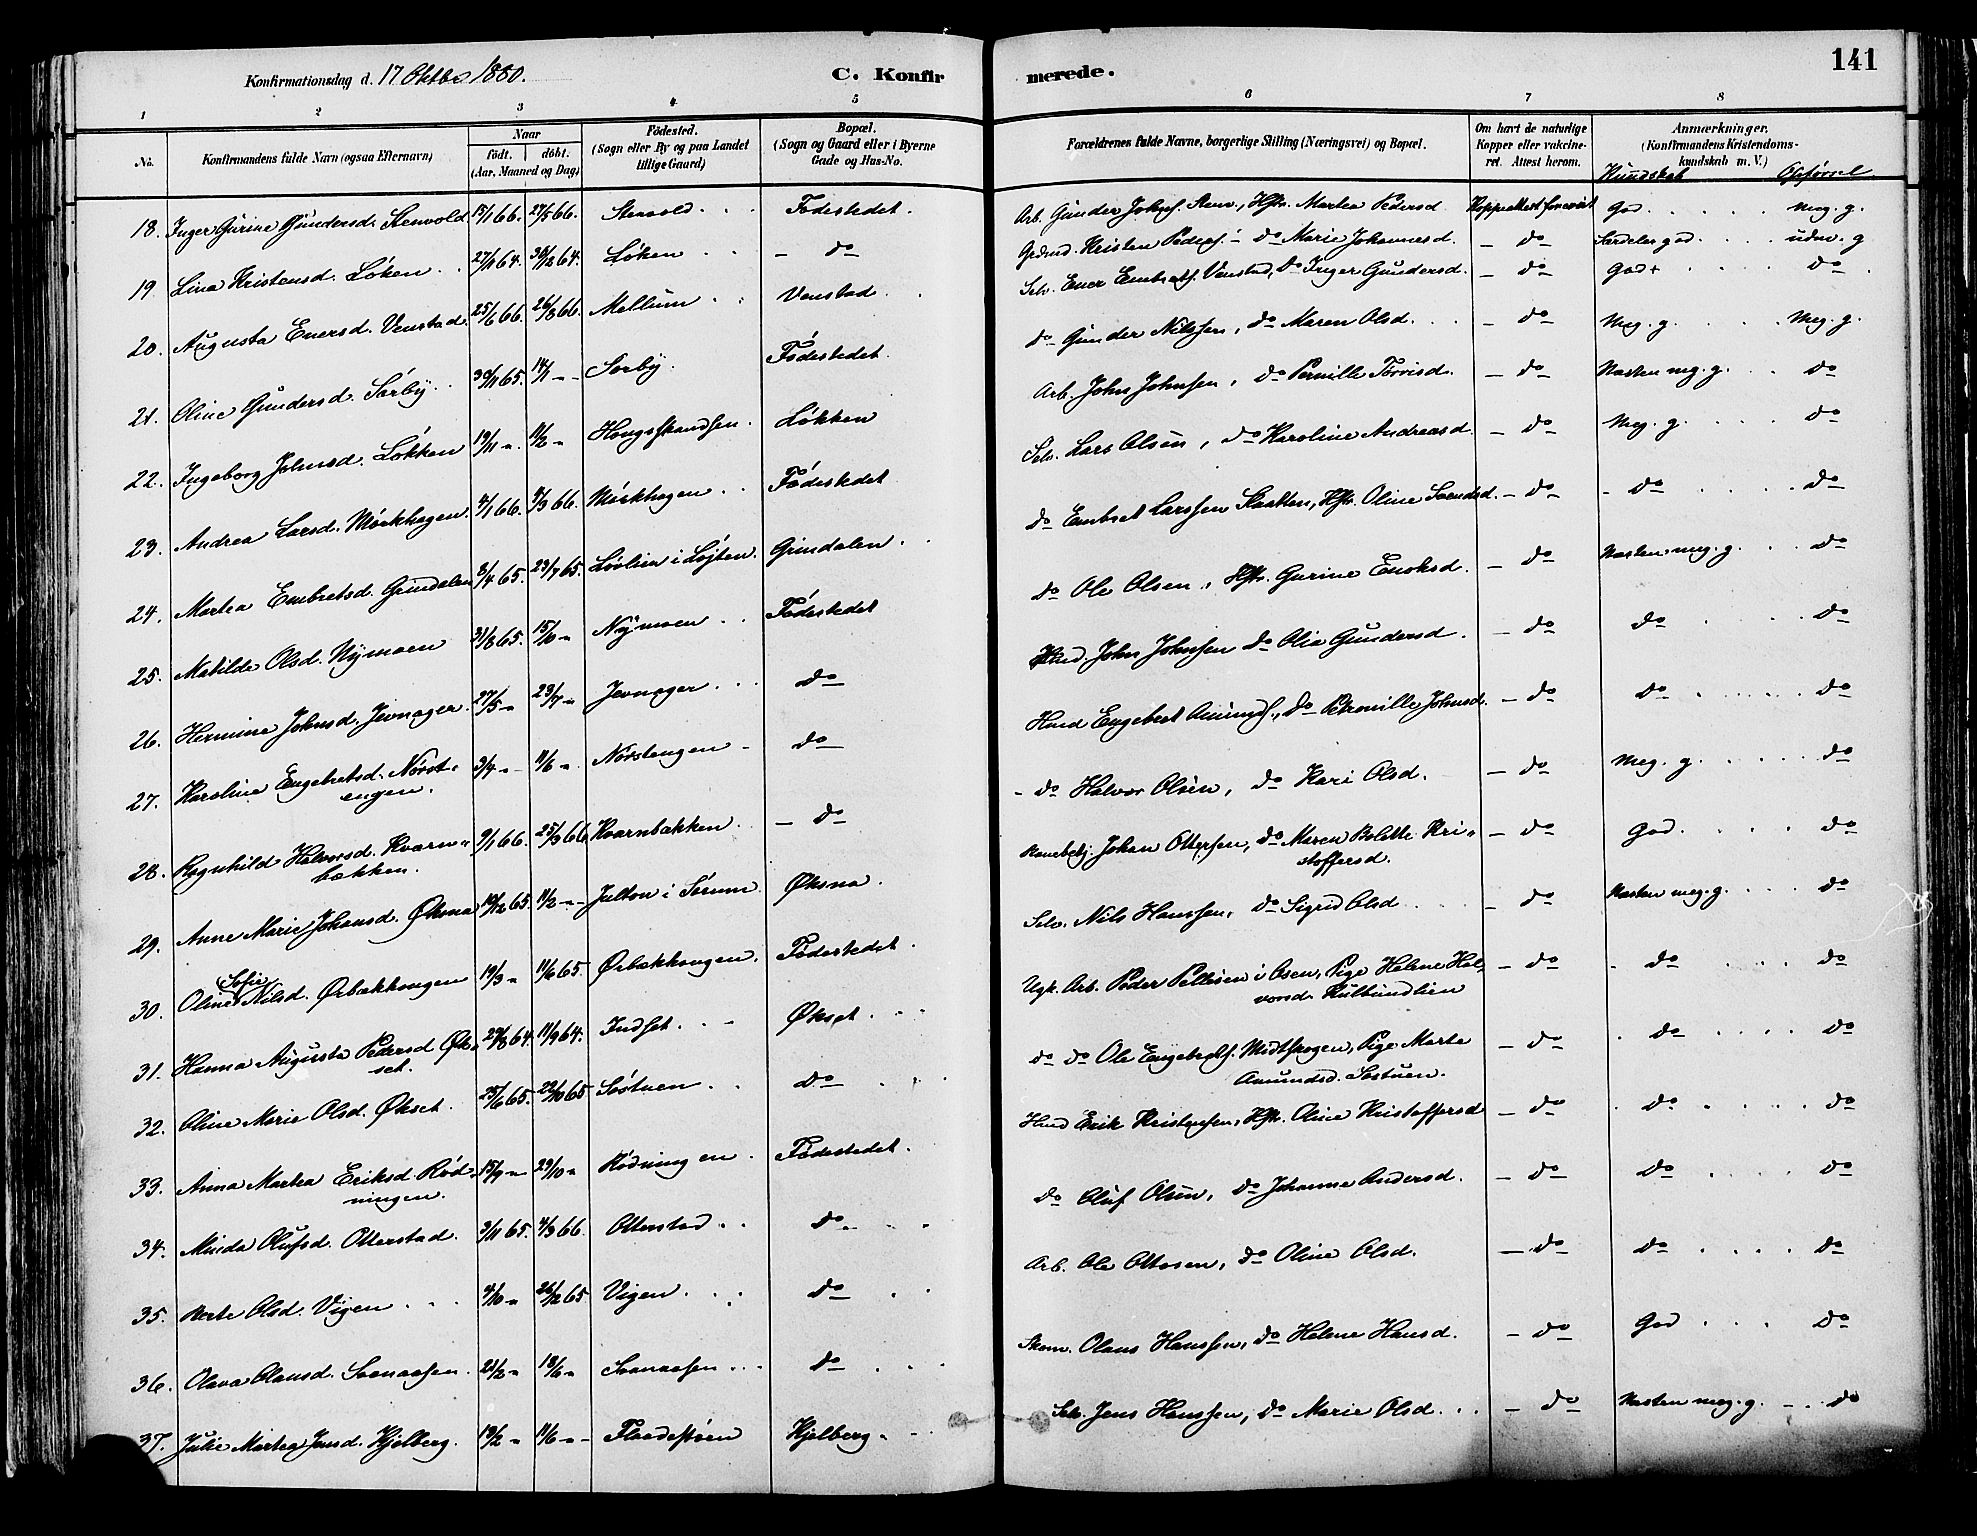 Konfirmationsdag d. 17 Oktbr 1880.
C. Konfir
merede.
141
1 2 3 4 5 6 7 8
No.
Konfirmandens fulde Navn (ogsaa Efternavn)
Naar
födt. döbt.
(Aar, Maaned og Dag)
Födested.
(Sogn eller By og paa Landet
tillige Gaard)
Bopæl.
(Sogn og Gaard eller i Byerne
Gade og Hus-No.
Forældrenes fulde Navne, borgerlige Stilling (Næringsvei) og Bopæl.
Om havt de naturlige
Kopper eller vakcine-
ret. Attest herom.
Anmærkninger.
(Konfirmandens Kristendoms-
kundskab m. V.)
Kundskab Opførsel
18. Inger Gurine Gundersd. Stenvold 15/1 66. 27/5 66. Stenvold Fødestedet. Arb. Gunder Johs. Sten., Hstr. Martea Pedersd Koppeattest forevist God Meg. g.
19. Lina Kristensd. Løken 27/11 64. 30/12 64. Løken do Grdmd. Kristen Peders. do Marie Johannesd. do Særdeles god udm. g
20. Augusta Enersd. Venstad 25/6 66. 26/8 66. Mellum Venstad Selv. Ener Embretsf. Venstad, do Inger Gundersd. do God+ do
21. Oline Gundersd. Sørby 30/11 65. 14/1 Sørby. Fødestedet do Gunder Nilssen, do Maren Olsd. do Meg. g. Meg. g.
22. Ingeborg Johnsd. Løkken 19/11 11/2 Løkken Arb. John Johnsen, do Pernille do Næsten meg. g. do
23. Andrea Larsd. Mørkhagen. 4/1 66. 4/3 66. Mørkhagen Fødestedet Selv. Lars Olsen, do Karoline Andreasd. do Meg. g. do
24. Martea Embretsd. Grindalen 8/4 65. 23/7 65. Løvlien i Løjten. Grindalen do Embret Larssen Hstr. Oline Svendsd. do do do
25. Matilde Olsd. Nymoen 31/8 65. 15/10 Nymoen Fødestedet do Ole Olsen, Hstr. Gurine Enoksd. do Næsten meg. g. do
26. Hermine Johnsd. Jevnager. 27/5 23/7 Jevnager do Husd John Johnsen do Olia Gundersd. do do do
27. Karoline Engebretsd. Nørst-
engen. 3/4 11/6 Nørstengen do Husd Engebret Amunds., do Petronille Johnsd. do do do
28. Ragnhild Halvorsd. Kværn-
bækken. 9/1 66. 25/3 66 Kværnbækken do do Halvor Olsen, do Kari Olsd. do Meg. g. do
29. Anne Marie Johansd. Øksna 19/12 65. 11/2 Julton i Sørum Øksna. Johan Ottersen, do Maren Bolette Kri-
stoffersd. do God. do
30. Oline Sofie Nilsd. Ørbækhaugen 19/3 11/6 65. Ørbækhaugen. Fødestedet Selv. Nils Hanssen, do Sigrid Olsd do Næsten meg. g. do
31. Hanna Augusta Pedersd. Øk-
set. 29/8 64. 11/9 64. Indset. Økset Ugk. Arb. Peder Pettersen i Osen, Pige Helene Hal-
vorsd. Kulbundlien do do do
32. Oline Marie Olsd. Økset. 25/6 65. 22/10 65 Søstuen do do do Ole Engebrets. Midtskogen, Pige Marte
Amundsd. Søstuen. do do do
33. Anna Martea Eriksd. Rød-
ningen. 15/9 29/10 Rødningen. Fødestedet. Husd Erik Kristensen, Hstr. Oline Kristoffersd do do do
34. Minda Olufsd. Otterstad. 3/11 65. 4/3 66. Otterstad do do Oluf Olsen, do Johanne Andersd. do do do
35. Berte Olsd. Vigen 4/10 26/12 65 Vigen do Arb. Ole Ottosen, do Oline Olsd. do do do
36. Olava Olausd. Svenaasen. 21/2 18/6 Svenaasen do Skom. Olaus Hanssen, do Helene Hansd. do God do
37. Julie Martea Jensd. Kjølberg. 19/2 11/6 Kjølberg. Selv. Jens Hanssen, do Marie Olsd. do Næsten meg. g. do